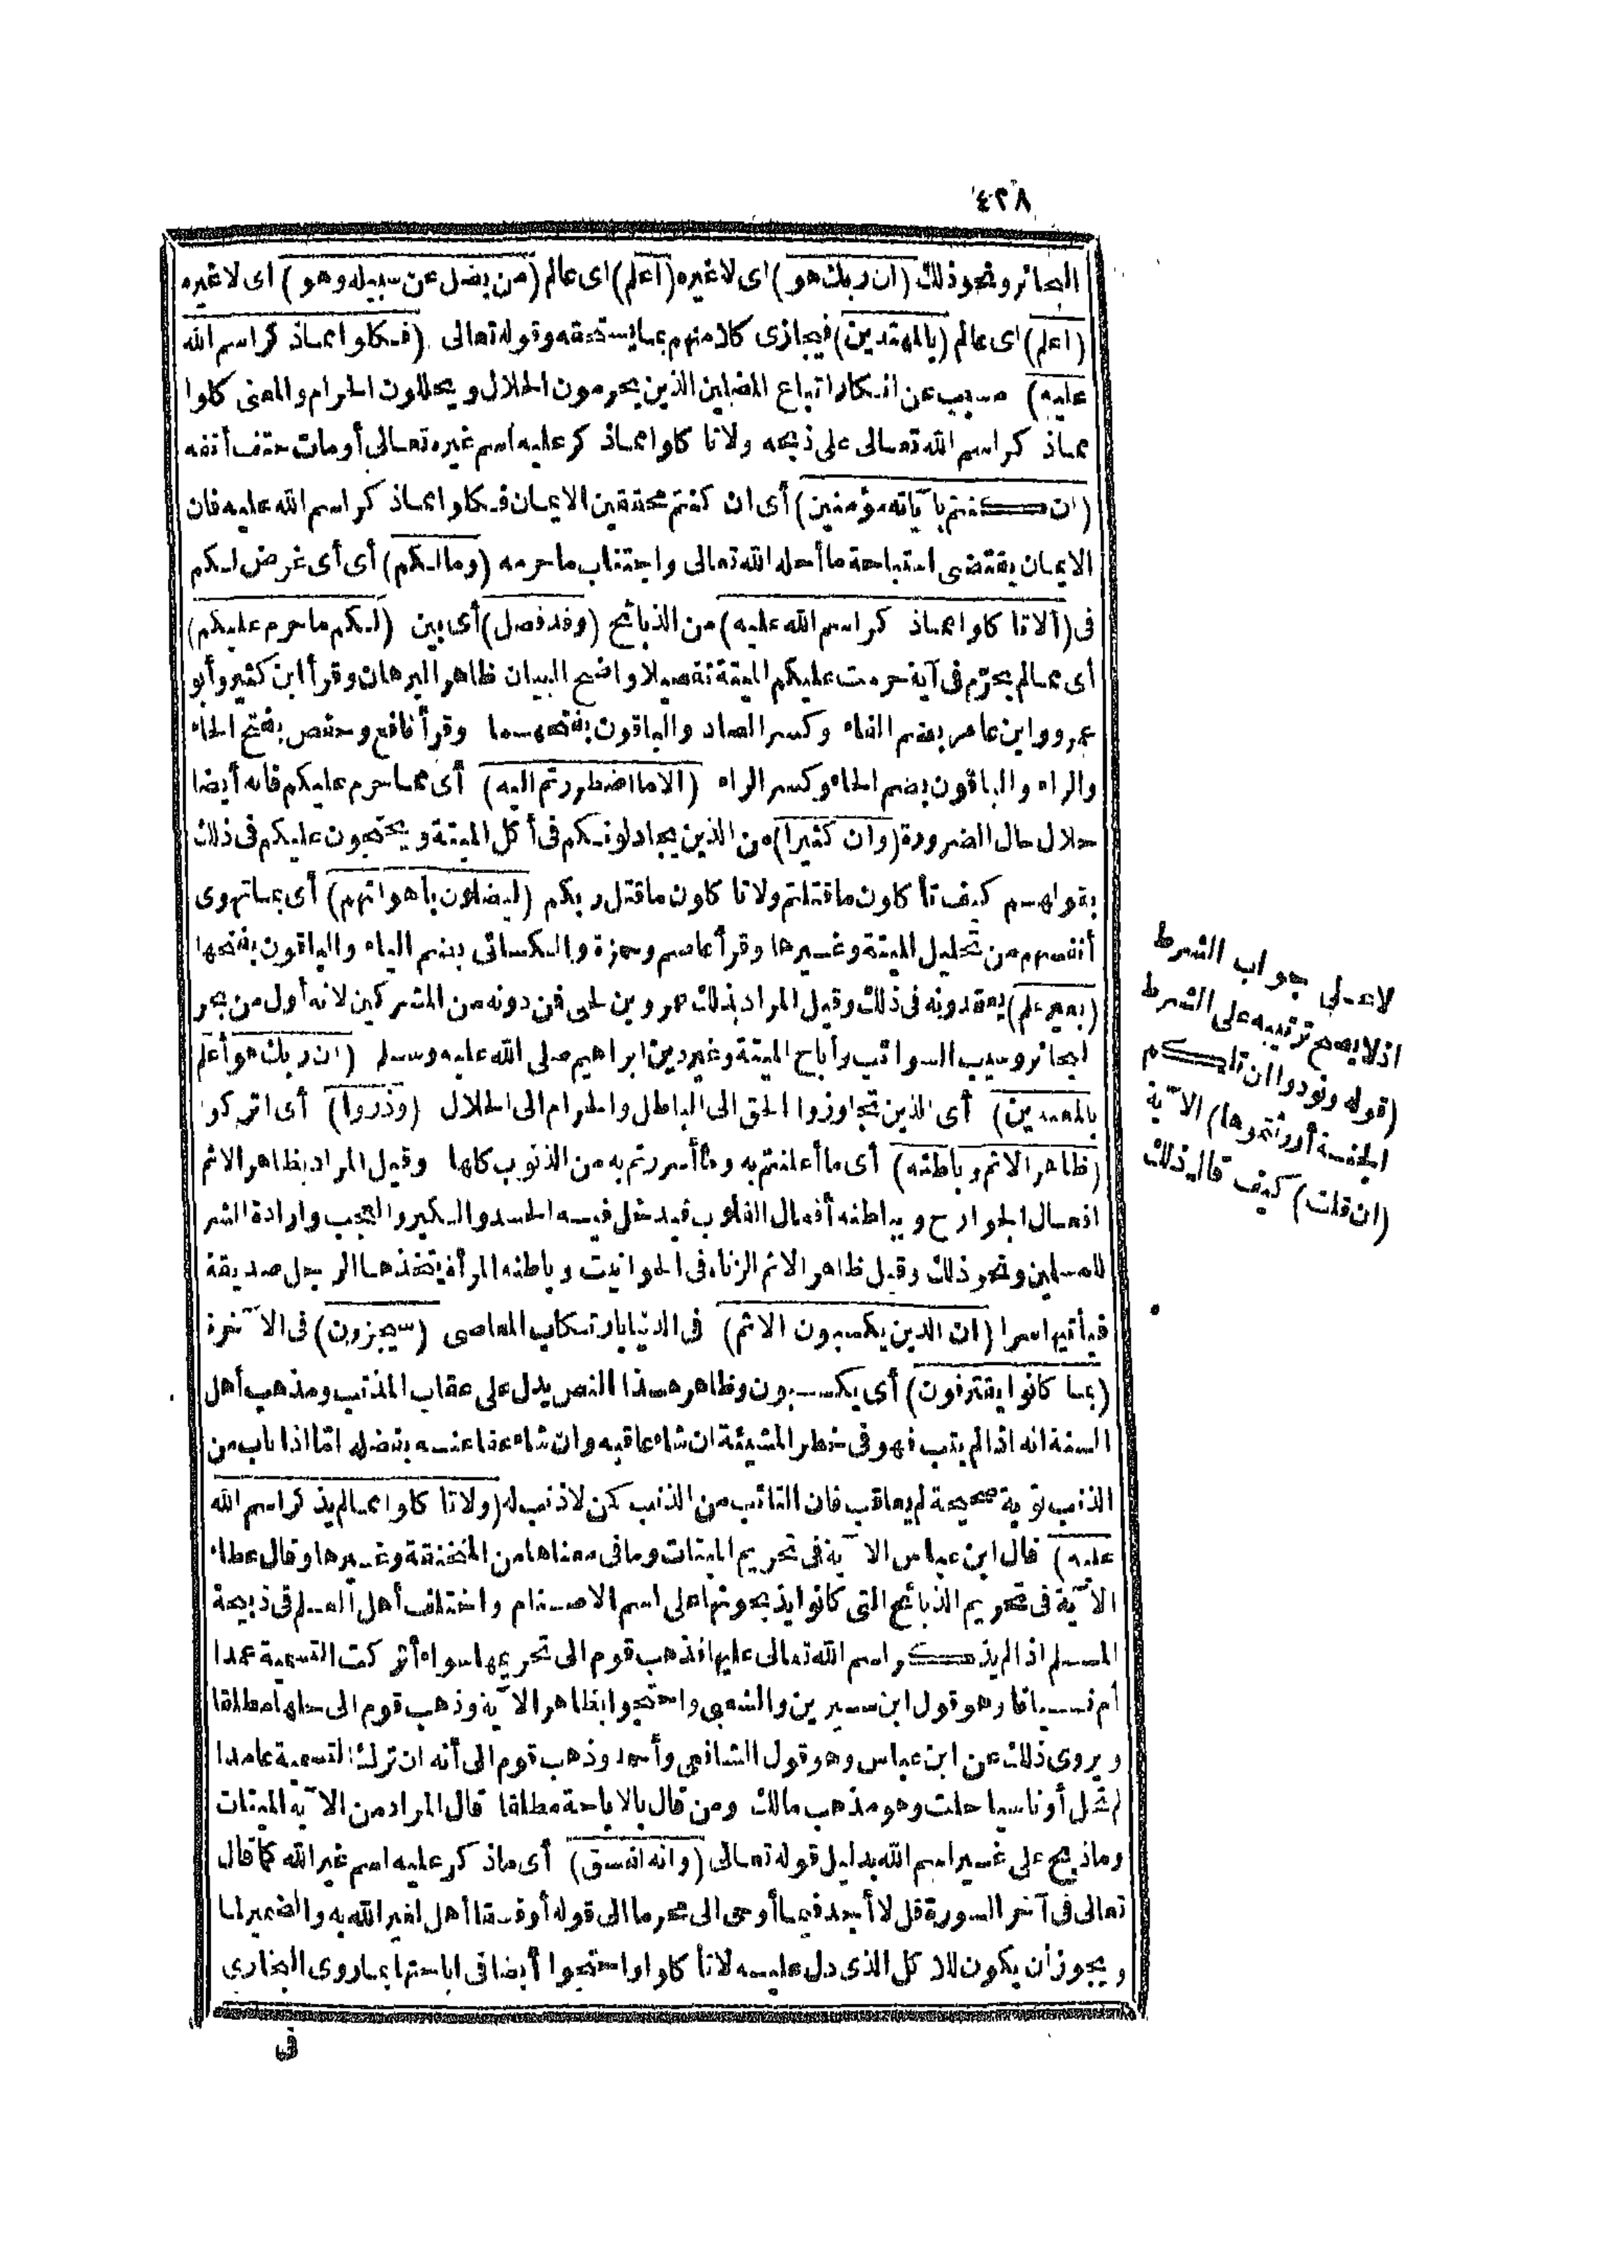 ٤٢٨
البحائر ونحو ذلك (ان ربك هو) اى لا غيره (اعلم) اى عالم (من يضل عن سبيله وهو) اى لا غيره
(اعلم) اى عالم (بالمهتدين) فيجازى كلا منهم بما يستحقه وقوله تعالى (فكلوا مما ذكر اسم الله
عليه) مسبب عن انكار اتباع المضلين الذين يحرمون الحلال ويحللون الحرام والمعنى كلوا
مما ذكر اسم الله تعالى على ذبحه ولا تاكلوا مما ذكر عليه اسم غيره تعالى أو مات حتف أنفه
(ان كنتم بآياته مؤمنين) أى ان كنتم محققين الايمان فكلوا مما ذكر اسم الله عليه فان
الايمان يقتضى استباحة ما أحله الله تعالى واجتناب ما حرمه (ومالكم) أى أى غرض لكم
فى (ألا تاكلوا مما ذكر اسم الله عليه) من الذبائح (وقد فصل) أى بين (لكم ما حرم عليكم)
أى مما لم يحرّم فى آية حرمت عليكم الميتة تفصيلا واضح البيان ظاهر البرهان وقرأ ابن كثير وأبو
عمرو وابن عامر بضم الفاء وكسر الصاد والباقون بفتحهما وقرأ نافع وحفص بفتح الحاء
والراء والباقون بضم الحاء وكسر الراء (الا ما اضطررتم اليه) أى مما حرم عليكم فانه أيضا
حلال حال الضرورة (وان كثيرا) من الذين يجادلونكم فى أكل الميتة ويحتجون عليكم فى ذلك
بقولهم كيف تأكلون ما قتلتم ولا تاكلون ما قتل ربكم (ليضلون بأهوائهم) أى بما تهوى
أنفسهم من تحليل الميتة وغيرها وقرأ عاصم وحمزة والكسائى بضم الياء والباقون بفتحها
(بغير علم) يعتمدونه فى ذلك وقيل المراد بذلك عمرو بن لحى فمن دونه من المشركين لانه أول من بحر
البحائر وسيب السوائب وأباح الميتة وغير دين ابراهيم صلى الله عليه وسلم (ان ربك هو أعلم
بالمعتدين) أى الذين تجاوزوا الحق الى الباطل والحرام الى الحلال (وذروا) أى اتركوا
(ظاهر الاثم وباطنه) أى ما أعلنتم به وما أسررتم به من الذنوب كلها وقيل المراد بظاهر الاثم
افعال الجوارح وبباطنه أفعال القلوب فيدخل فيه الحسد والكبر والعجب وارادة الشر
للمسلمين ونحو ذلك وقيل ظاهر الاثم الزناء فى الحوانيت وباطنه المرأة يتخذها الرجل صديقة
فيأتيها سرا (ان الذين يكسبون الاثم) فى الدنيا بارتكاب المعاصى (سيجزون) فى الآخرة
(بما كانوا يقترفون) أى يكسبون وظاهر هذا النص يدل على عقاب المذنب ومذهب أهل
السنة انه اذا لم يتب فهو فى خطر المشيئة ان شاء عاقبه وان شاء عفا عنه بفضله امّا اذا تاب من
الذنب توبة صحيحة لم يعاقب فان التائب من الذنب كمن لا ذنب له (ولا تاكلوا مما لم يذكر اسم الله
عليه) قال ابن عباس الآية فى تحريم الميتات وما فى معناها من المنخنقة وغيرها وقال عطاء
الآية فى تحريم الذبائح التى كانوا يذبحونها على اسم الاصنام واختلف أهل العلم فى ذبيحة
المسلم اذا لم يذكر اسم الله تعالى عليها فذهب قوم الى تحريمها سواء أتركت التسمية عمدا
أم نسيانا وهو قول ابن سيرين والشعبى واحتجوا بظاهر الآية وذهب قوم الى حلها مطلقا
ويروى ذلك عن ابن عباس وهو قول الشافعى وأحمد وذهب قوم الى أنه ان ترك التسمية عامدا
لم تحل أو ناسيا حلت وهو مذهب مالك ومن قال بالاباحة مطلقا قال المراد من الآية الميتات
وما ذبح على غير اسم الله بدليل قوله تعالى (وانه لفسق) أى ما ذكر عليه اسم غير الله كما قال
تعالى فى آخر السورة قل لا أجد فيما أوحى الى محرما الى قوله أو فسقا أهل لغير الله به والضمير لما
ويجوز أن يكون للاكل الذى دل عليه لا تأكلوا واحتجوا أيضا فى اباحتها بما روى البخارى
فى
لا على جواب الشرط
اذ لا يصح ترتيبه على الشرط
(قوله ونودوا ان تلكم
الجنة أورثتموها) الآية
(ان قلت) كيف قال ذلك